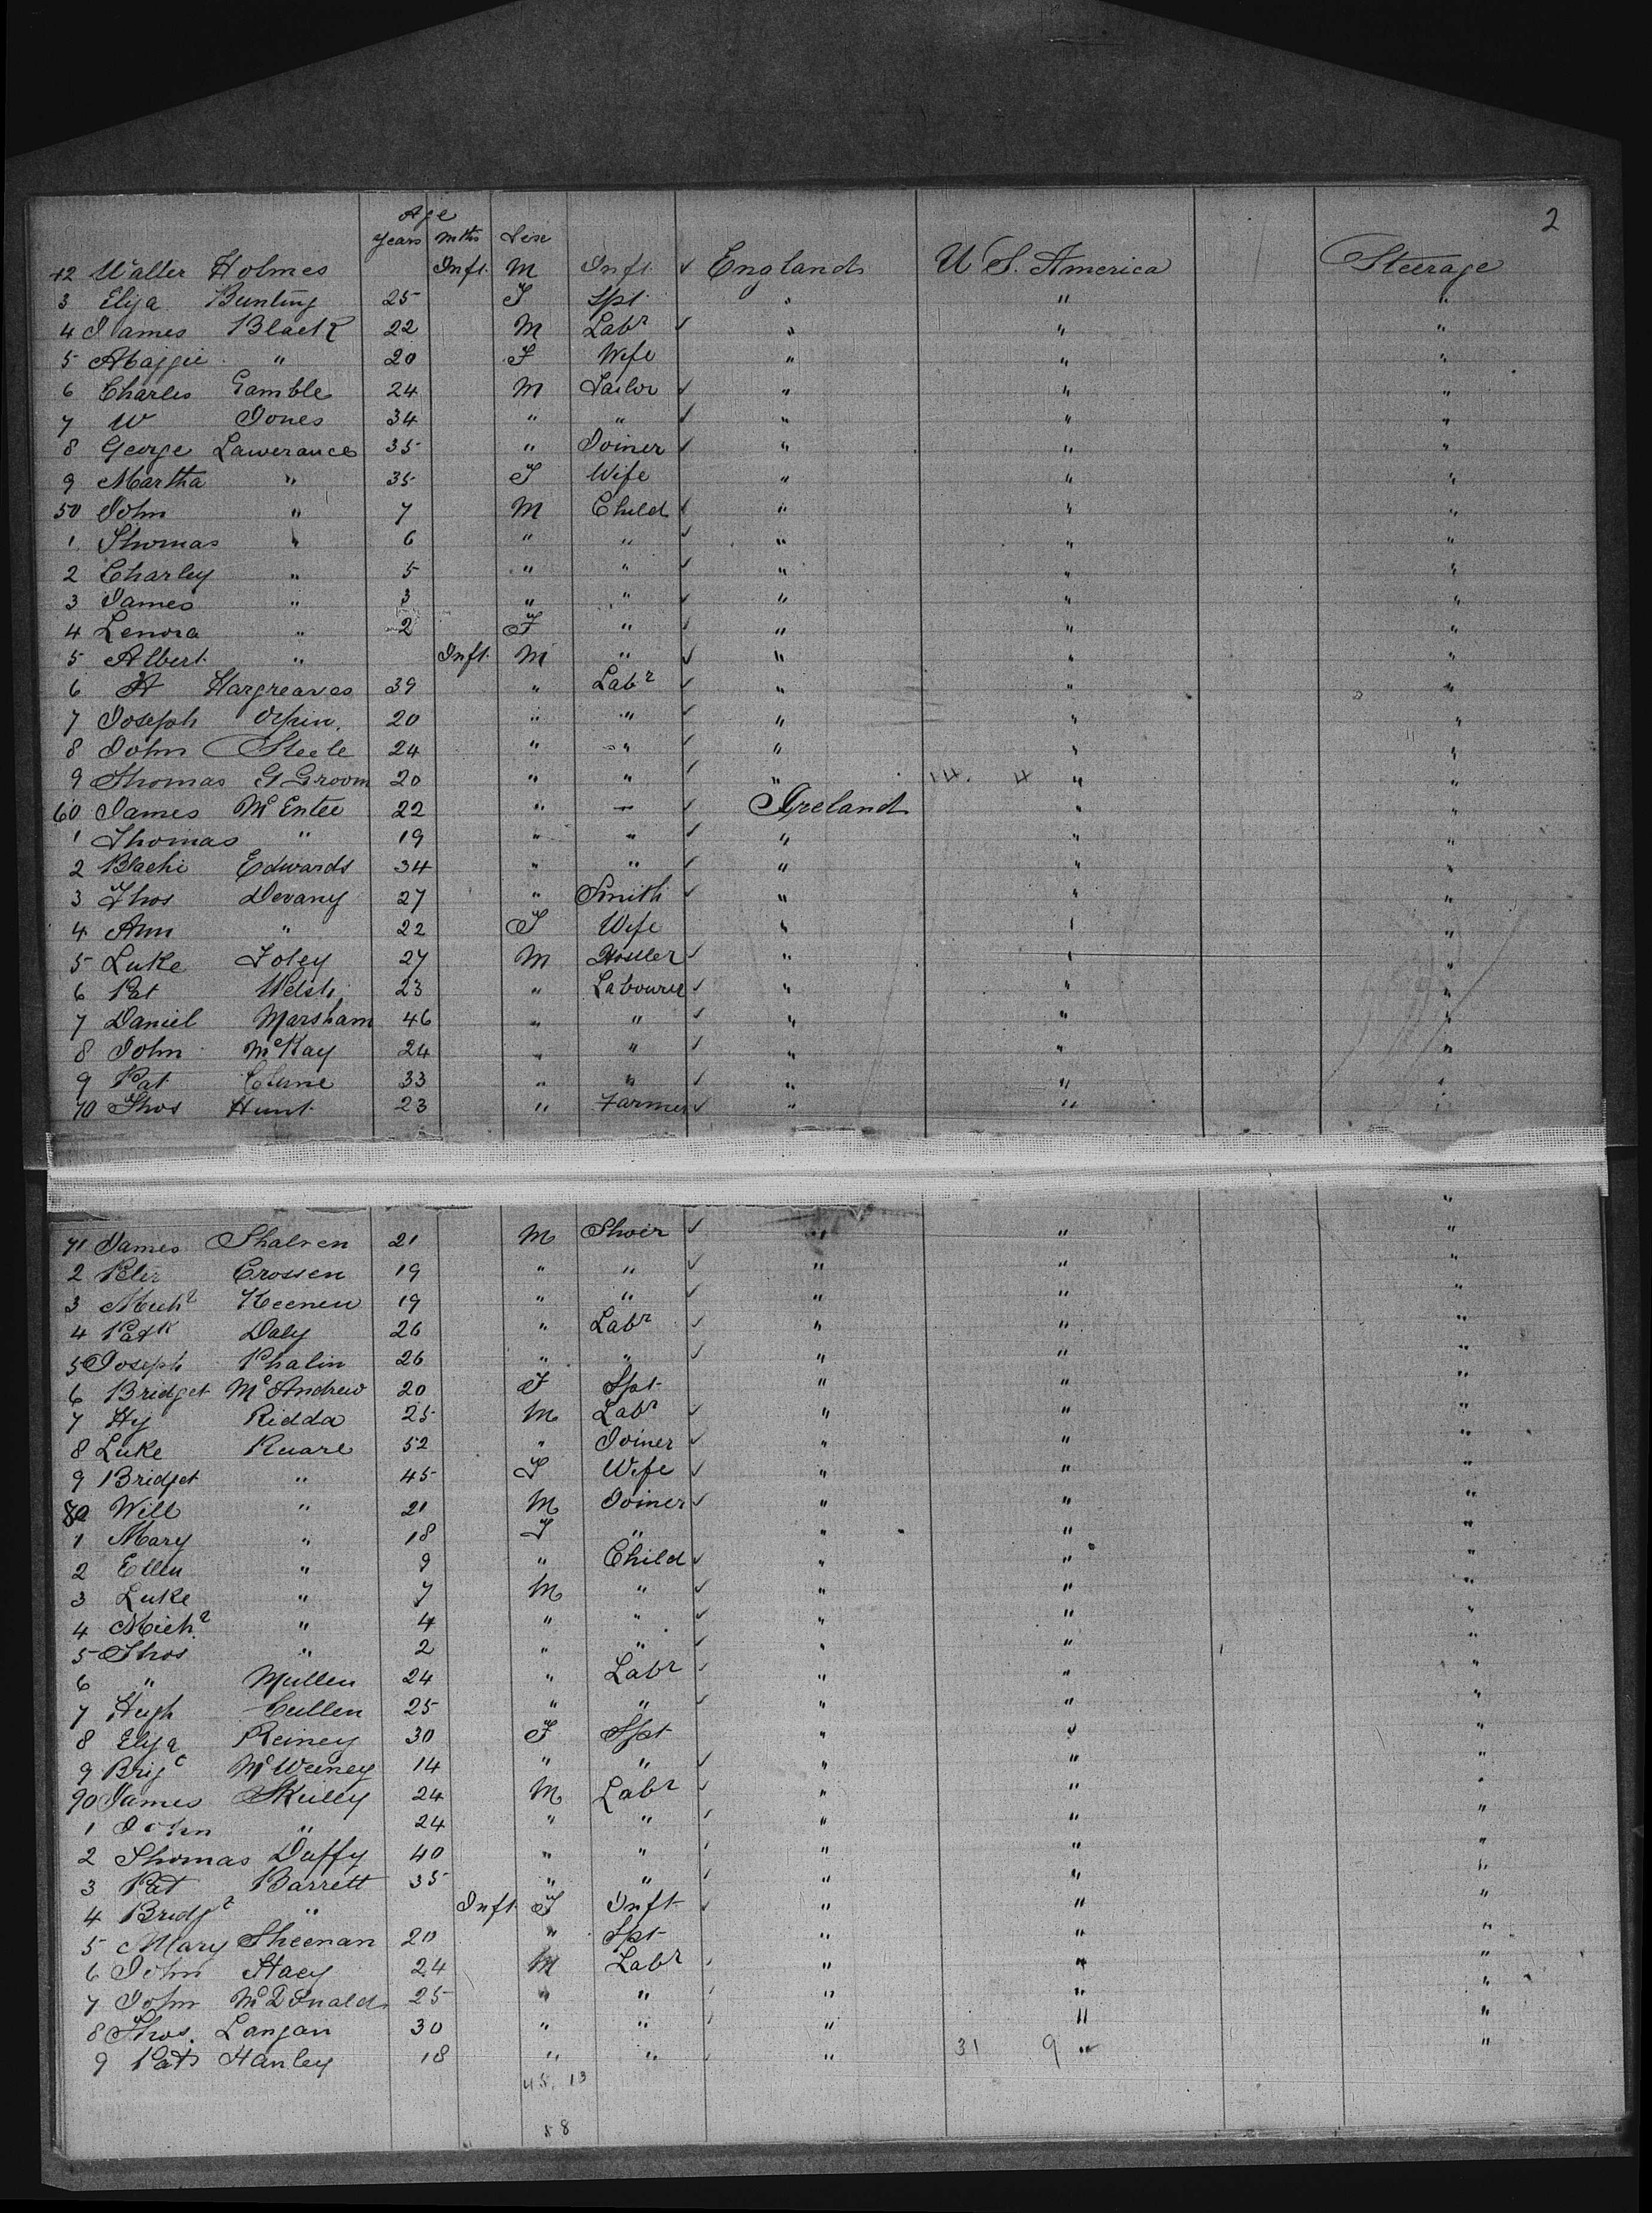 2
Age
Years mths Sex
42 Walter Holmes Inft. M Inft ✓ England U S. America Steerage
3 Eliza Bunting 25 F Spt " " "
4 James Black 22 M Labr ✓ " " "
5 Maggie " 20 F Wife " " "
6 Charles Gamble 24 M Tailor ✓ " " "
7 W Jones 34 " " ✓ " " "
8 George Lawerance 35 " Joiner ✓ " " "
9 Martha " 35 F Wife " " "
50 John " 7 M Child ✓ " " "
1 Thomas " 6 " " ✓ " " "
2 Charley " 5 " " ✓ " " "
3 James " 3 " " ✓ " " "
4 Lenora " 2 F " ✓ " " "
5 Albert " Inft. M " ✓ " " "
6 Hargreaves 39 " Labr ✓ " " "
7 Joseph Orpin. 20 " " ✓ " " "
8 John Steele 24 " " ✓ " " "
9 Thomas G Groom 20 " " ✓ " 14. 4 " "
60 James McEntee 22 " " ✓ Ireland " "
1 Thomas " 19 " " ✓ " " "
2 Edwards 34 " " ✓ " " "
3 Thos Devany 27 " Smith ✓ " " "
4 Ann " 22 F Wife " " "
5 Luke Foley 27 M Hostler ✓ " " "
6 Pat Welsh 23 " Labourer ✓ " " "
7 Daniel Marsham 46 " " ✓ " " "
8 John McKay 24 " " ✓ " " "
9 Pat Clune 33 " " ✓ " " "
70 Thos Hunt 23 " Farmer ✓ " " "
71 James 21 M ✓ " " "
2 Peter Crossen 19 " " ✓ " " "
3 Michl Keenen 19 " " ✓ " " "
4 Patk Daly 26 " Labr ✓ " " "
5 Joseph Phalin 26 " " ✓ " " "
6 Bridget McAndrew 20 F Spt " " "
7 Hy Ridda 25 M Labr ✓ " " "
8 Luke Ruare 52 " Joiner ✓ " " "
9 Bridget " 45 F Wife ✓ " " "
80 Will " 21 M Joiner ✓ " " "
1 Mary " 18 F " " " "
2 Ellen " 9 " Child ✓ " " "
3 Luke " 7 M " ✓ " " "
4 Michl " 4 " " ✓ " " "
5 Thos " 2 " " ✓ " " "
6 " Mullen 24 " Labr ✓ " " "
7 Hugh Cullen 25 " " ✓ " " "
8 Eliza Reiney 30 F Spt " " "
9 Brigt McWeeney 14 " " ✓ " " "
90 James Skully 24 M Labr ✓ " " "
1 John " 24 " " ✓ " " "
2 Thomas Duffy 40 " " ✓ " " "
3 Pat Barrett 35 " " ✓ " " "
4 Bridgt " Inft F Inft ✓ " " "
5 Mary Sheenan 20 " Spt " " "
6 John Stacy 24 M Labr ✓ " " "
7 John McDonald 25 " " ✓ " " "
8 Thos. Langan 30 " " ✓ " " "
9 Pat Hanley 18 " " ✓ " 31 9 " "
45. 13
58